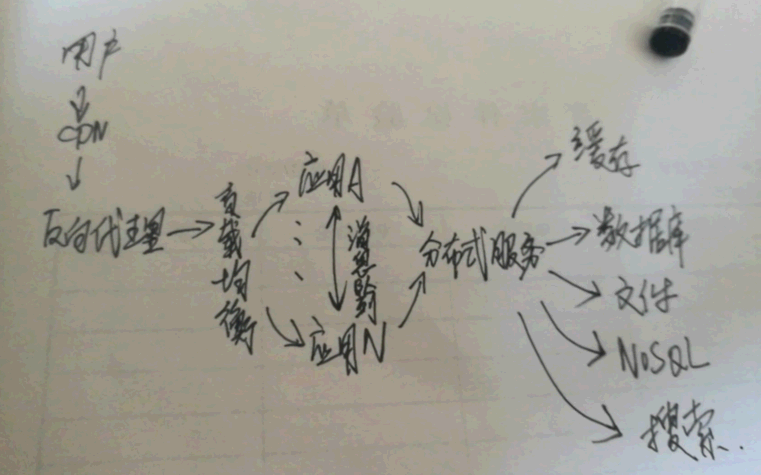 用户
CDN
反向代理
负载均衡
应用A
应用N
分布式服务
缓存
数据库
文件
NoSQL
搜索